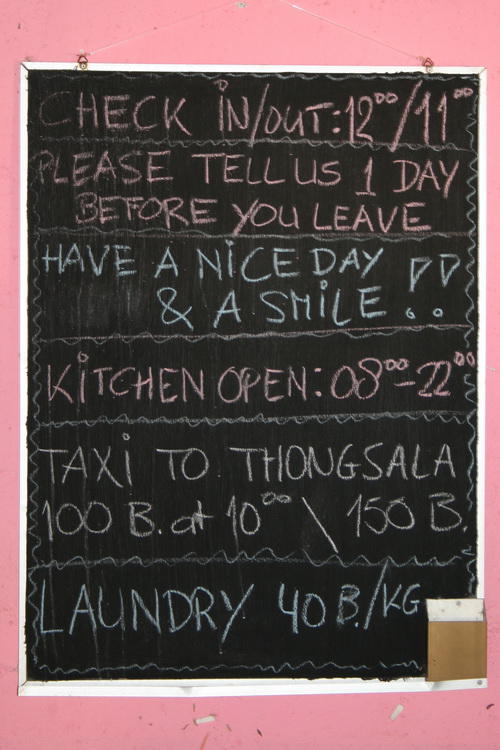 CHECK iN/OUT: 12⁰⁰/11⁰⁰
PLEASE TELL US 1 DAY
BEFORE YOU LEAVE
HAVE A NiCE DAY !!
& A SMiLE
KiTCHEN OPEN: 08⁰⁰-22⁰⁰
TAXi TO THONGSALA
100 B. at 10⁰⁰ \ 150 B.
LAUNDRY 40 B./KG